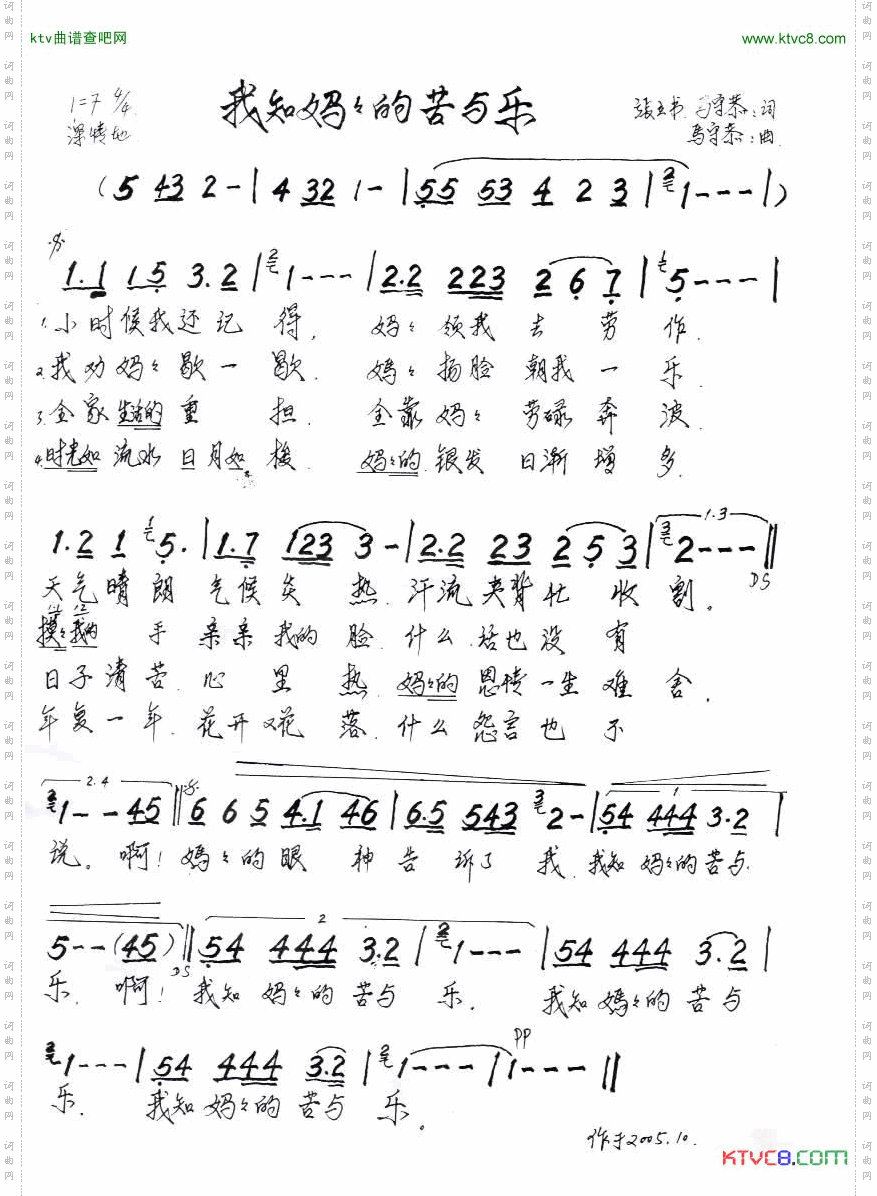 ktv曲谱查吧网 www.ktvc8.com
我知妈々的苦与乐
1=7 4/4 马守恭:词
深情地 马守恭:曲
(5 43 2 - | 4 32 1 - | 55 53 4 2 3 | 2 1 - - - | )
1.1 15 3.2 | 2 1 - - - | 2.2 223 2 6 7 | 1 5 - - - |
1.小时候我还记得, 妈々领我去劳作.
2.我劝妈々歇一歇. 媽々扬脸朝我一乐.
3.全家生活的重担. 全靠妈々劳碌奔波.
4.时光如流水日月如梭. 妈々的银发日渐增多.
1.2 1 1 5. | 1.7 123 3 - | 2.2 23 2 5 3 | 1.3 3 2 - - - ||
DS
天气晴朗气候炎热.汗流夹背忙收割。
摸々我的手亲亲我的脸.什么话也没有
日子清苦.心里热.妈々的恩情一生难舍.
年复一年.花开又花落.什么怨言也不
2.4
2 1 - - 45 || 6 6 5 4.1 46 | 6.5 543 3 2 - | 1 54 444 3.2 |
说。啊!媽々的眼神告诉了我.我知妈々的苦与
2
5 - - (45) || 54 444 3.2 | 2 1 - - - | 54 444 3.2 |
DS
乐.啊!我知妈々的苦与乐. 我知媽々的苦与
pp
2 1 - - - | 54 444 3.2 | 2 1 - - - | 1 - - - ||
乐. 我知妈々的苦与乐。
作于2005.10.
KTVC8.COM
词曲网